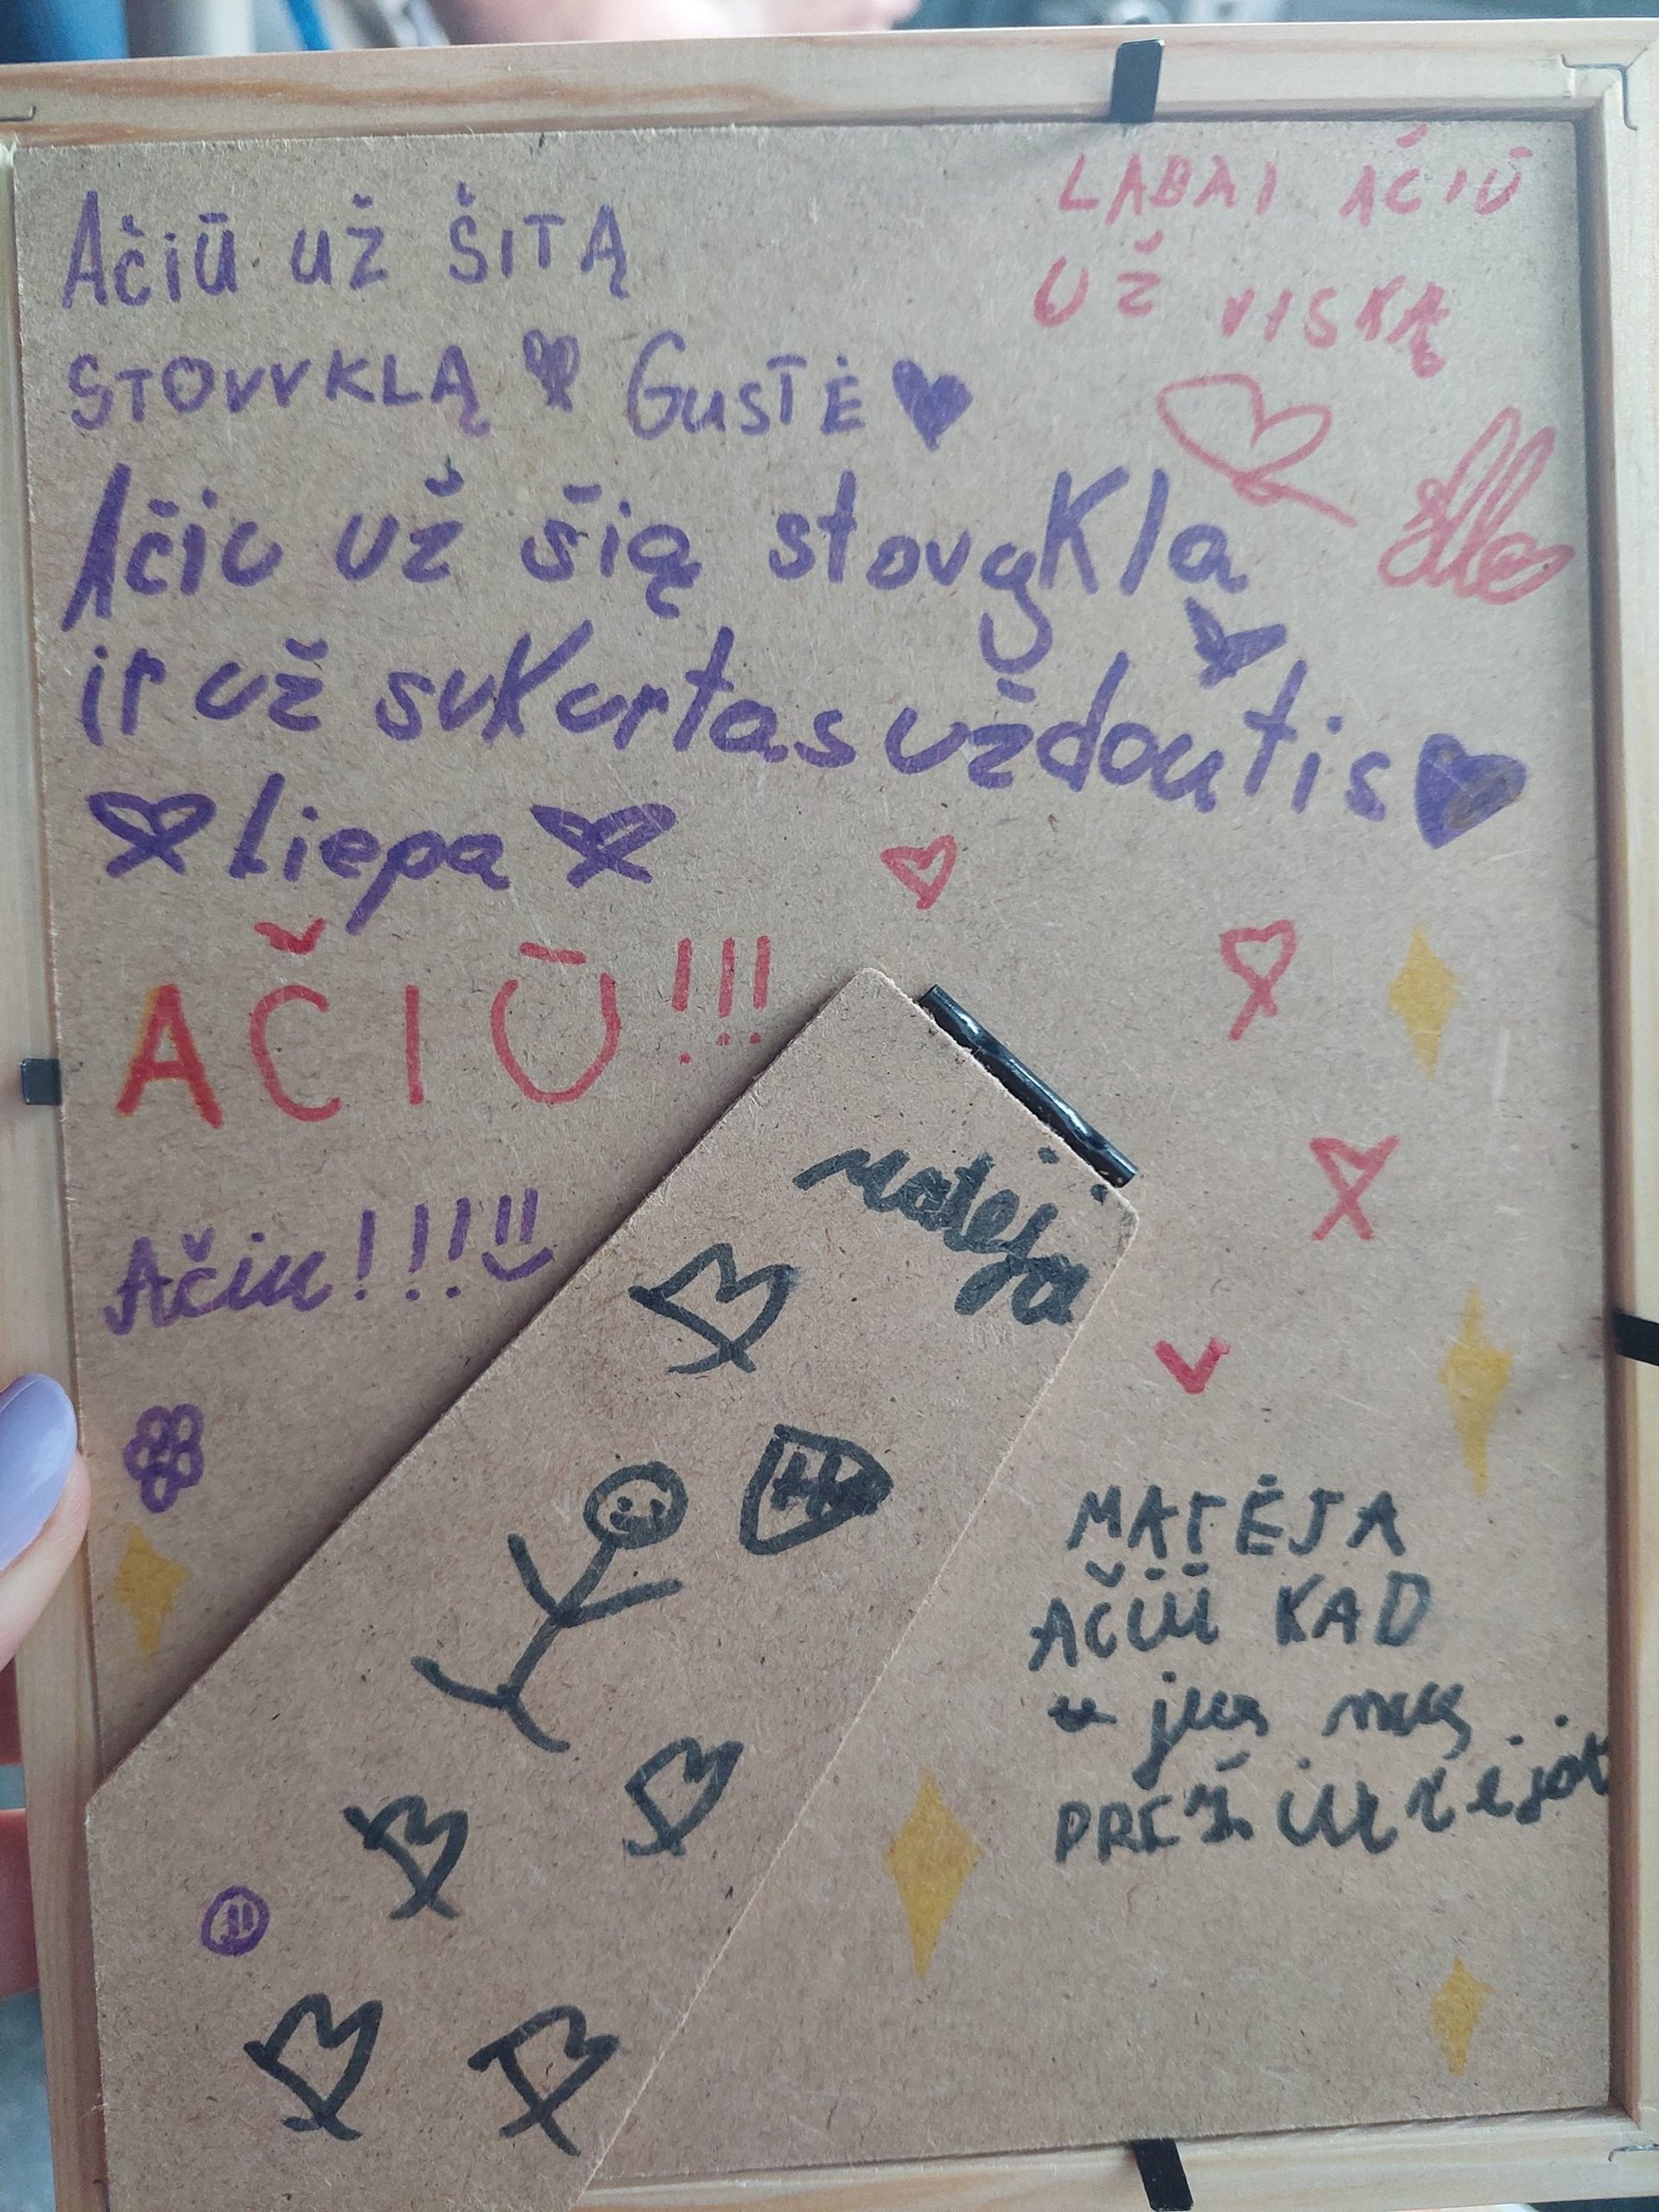 Ačiū už ŠITĄ
STOVVKLĄ GUSTĖ
LABAI AČIŪ
UŽ VISKĄ
Ačiu už šią stovyklą
ir už sukurtas uždoutis
Liepa
AČIŪ!!!
Ačiu!!!
mateja
MATĖJA
AČIŪ KAD
jus mus